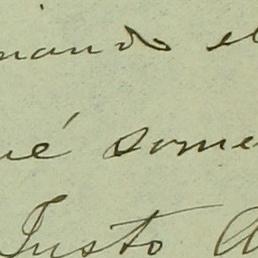 mando el
ué some
Justo A